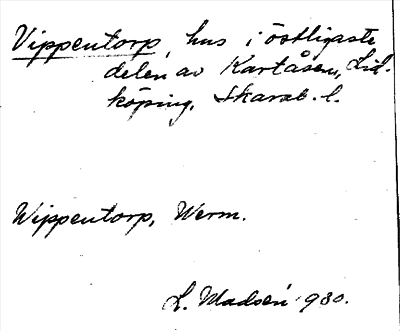 Vippentorp, hus i östligaste
delen av Kartåsen, Lid-
köping, Skarab. l.
Wippentorp, Werm.
L. Madsén 1930.